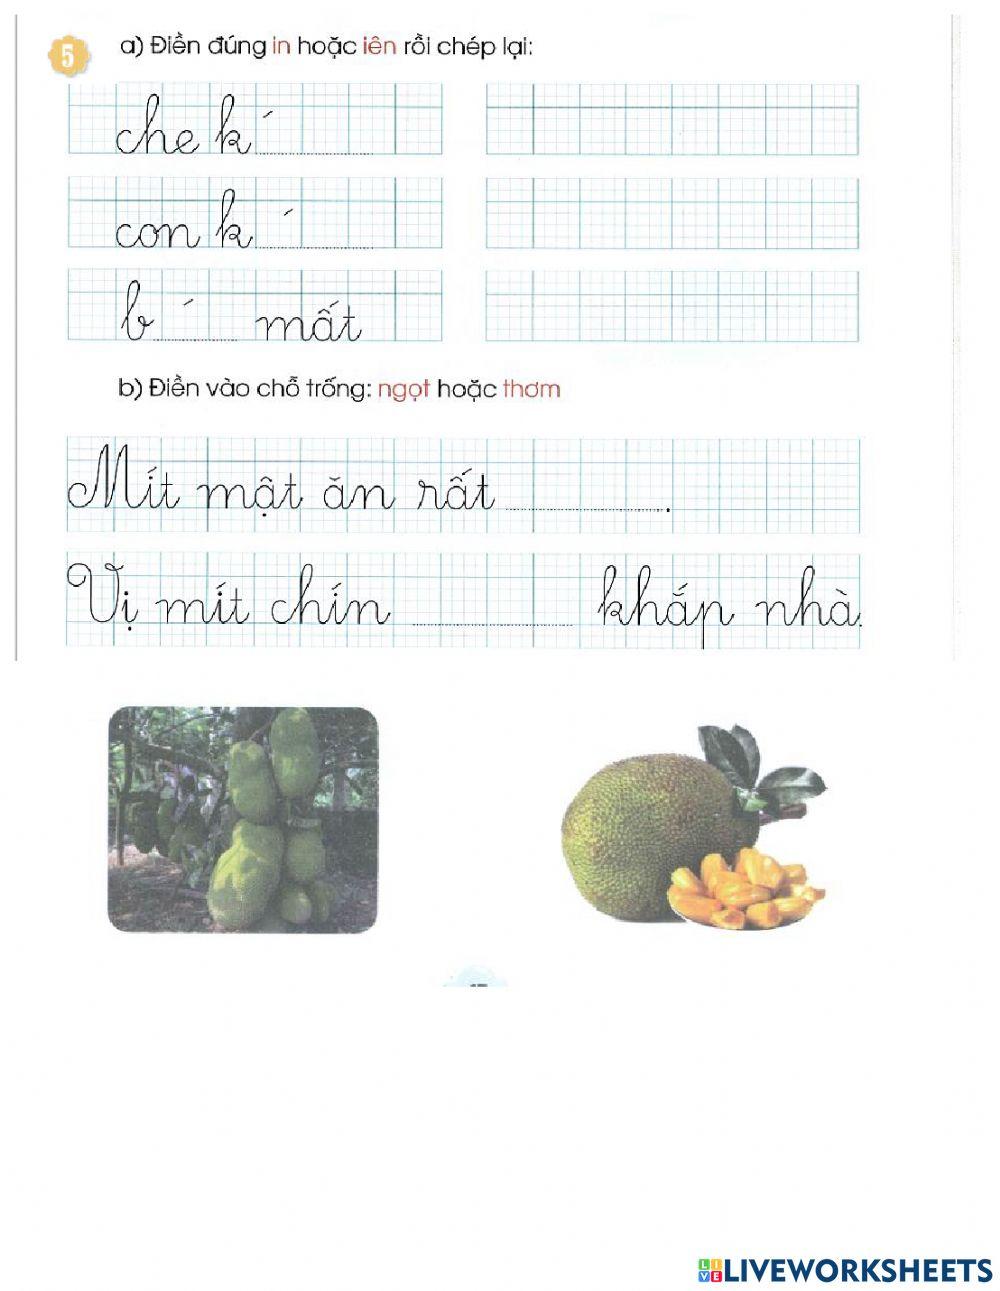 5 a) Điền đúng in hoặc iên rồi chép lại:
che k´
con k´
b´ mất
b) Điền vào chỗ trống: ngọt hoặc thơm
Mít mật ăn rất .
Vị mít chín khắp nhà.
LIVEWORKSHEETS